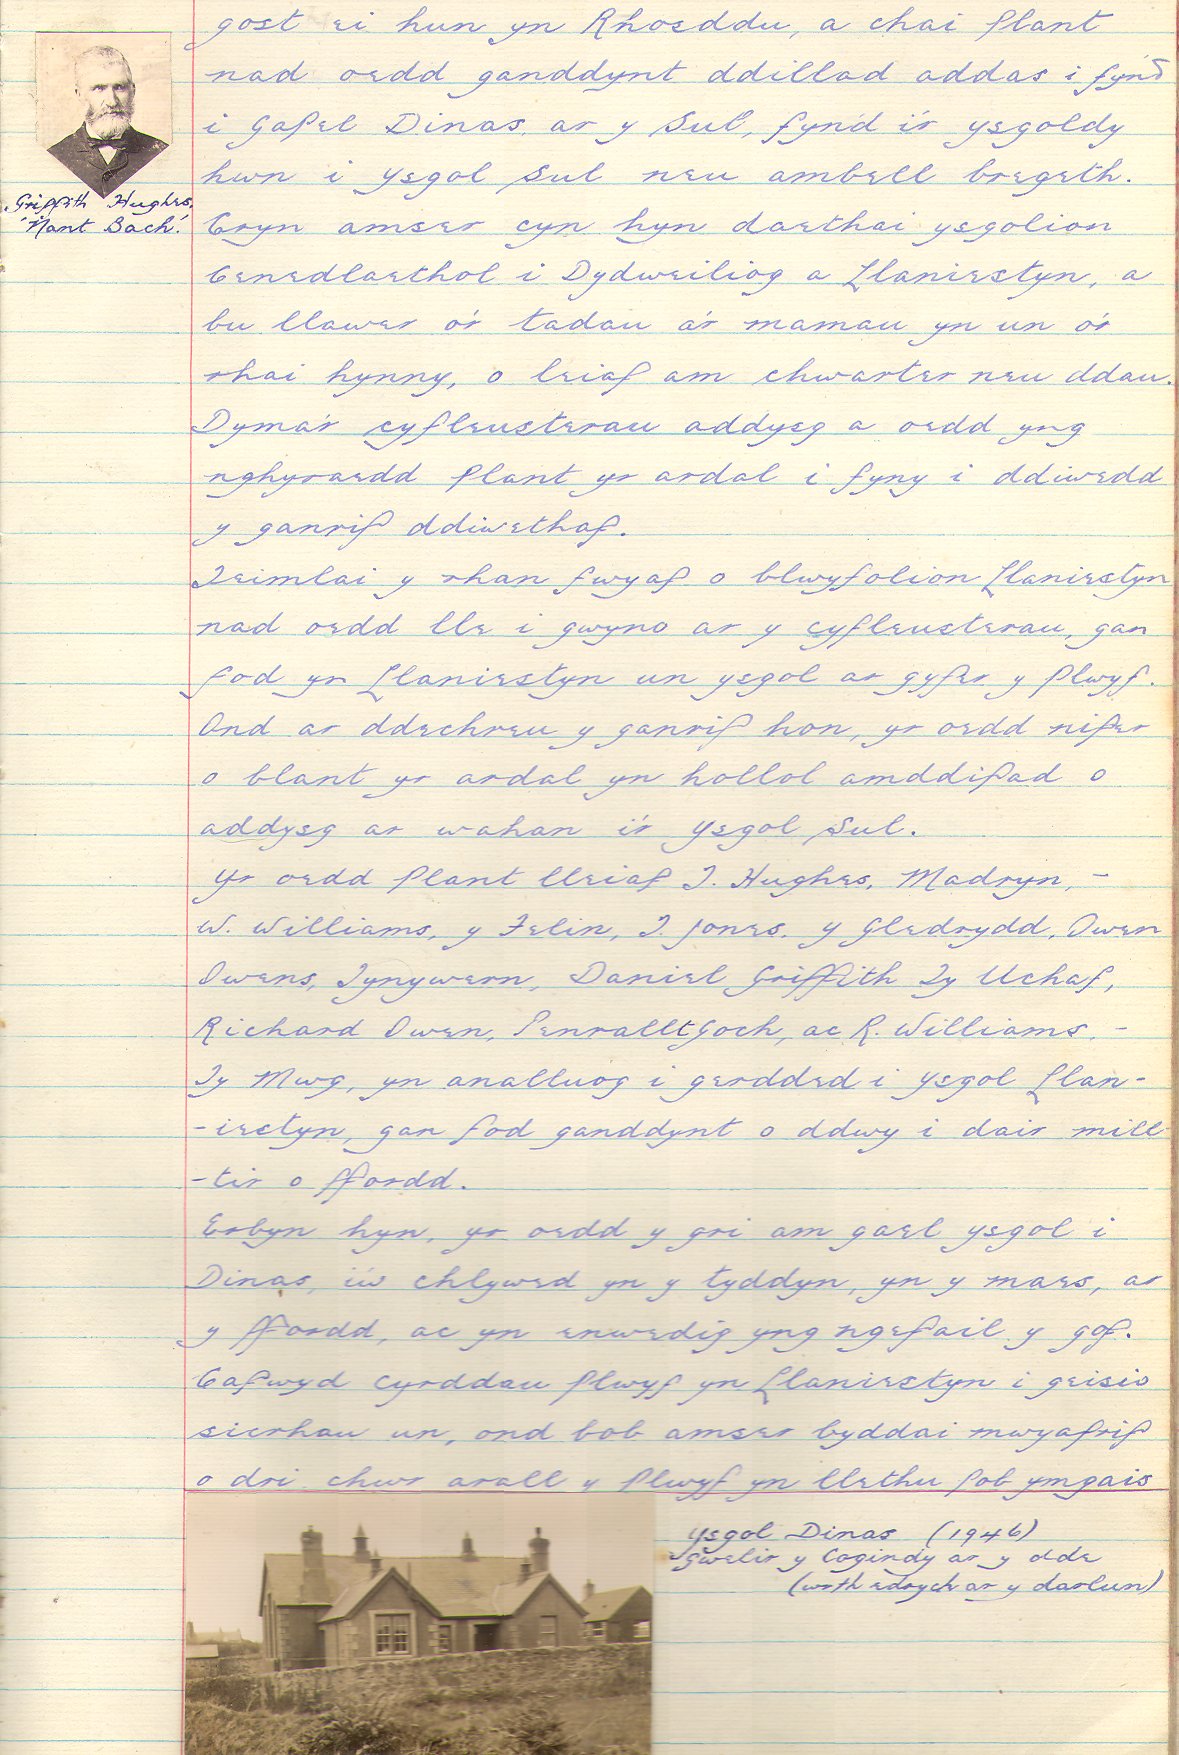 gost ei hun yn Rhosddu, a chai plant
nad oedd ganddynt ddillad addas i fynd
i Gapel Dinas, ar y Sul, fynd i'r ysgoldy
hwn i Ysgol Sul neu ambell bregeth.
Griffith Hughes,
'Nant Bach.'
Cryn amser cyn hyn daethai ysgolion
Cenedlaethol i Dydweiliog a Llaniestyn, a
bu llawer o'r tadau a'r mamau yn un o'r
rhai hynny, o leiaf am chwarter neu ddau.
Dyma'r cyfleusterau addysg a oedd yng
nghyraedd plant yr ardal i fyny i ddiwedd
y ganrif ddiwethaf.
Teimlai y rhan fwyaf o blwyfolion Llaniestyn
nad oedd lle i gwyno ar y cyfleusterau, gan
fod yn Llaniestyn un ysgol ar gyfer y plwyf.
Ond ar ddechreu y ganrif hon, yr oedd nifer
o blant yr ardal yn hollol amddifad o
addysg ar wahan i'r Ysgol Sul.
Yr oedd plant lleiaf T. Hughes, Madryn, -
W. Williams, y Felin, T. Jones, y Gledrydd, Owen
Owens, Tynywern, Daniel Griffith Ty Uchaf,
Richard Owen, Penrallt Goch, ac R. Williams, -
Ty Mwg, yn analluog i gerdded i Ysgol Llan-
-iestyn, gan fod ganddynt o ddwy i dair mill
-tir o ffordd.
Erbyn hyn, yr oedd y gri am gael ysgol i
Dinas, i'w chlywed yn y tyddyn, yn y maes, ar
y ffordd, ac yn enwedig yng ngefail y gof.
Cafwyd cyrddau plwyf yn Llaniestyn i geisio
sicrhau un, ond bob amser byddai mwyafrif
o dri chwr arall y plwyf yn llethu pob ymgais
Ysgol Dinas (1946)
Gwelir y Cogindy ar y dde
(wrth edrych ar y darlun)